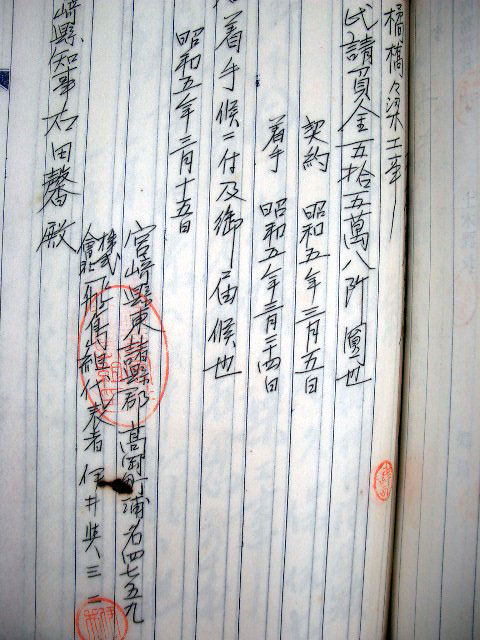 橘橋々梁工事
氏請負金五拾五萬八阡圓也
契約 昭和五年三月五日
着手 昭和五年三月十四日
着手候ニ付及御届候也
昭和五年三月十五日
宮崎縣東諸縣郡高岡町浦名四七五九
株式會社 組代表者 伊井奥三二
崎縣知事石田馨殿